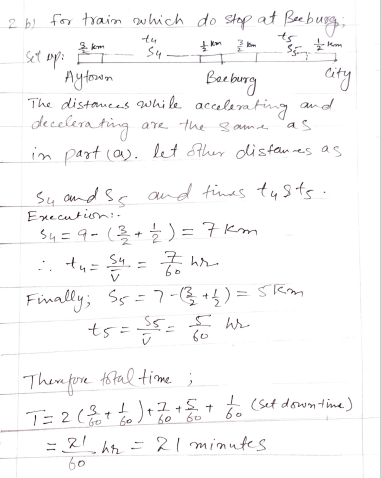 2 b) for train which do stop at Beeburg;
Set up: 3/2 km t4 S4 1/2 km 3/2 km t5 S5 1/2 km
Aytown Beeburg City
The distances while accelerating and
decelerating are the same as
in part (a). let other distances as
S4 and S5 and times t4 & t5.
Execution:-
S4 = 9 - (3/2 + 1/2) = 7 km
∴ t4 = S4/v̄ = 7/60 hr
Finally; S5 = 7 - (3/2 + 1/2) = 5 km
t5 = S5/v̄ = 5/60 hr
Therefore total time ;
T = 2 (3/60 + 1/60) + 7/60 + 5/60 + 1/60 (Set down time)
= 21/60 hr = 21 minutes